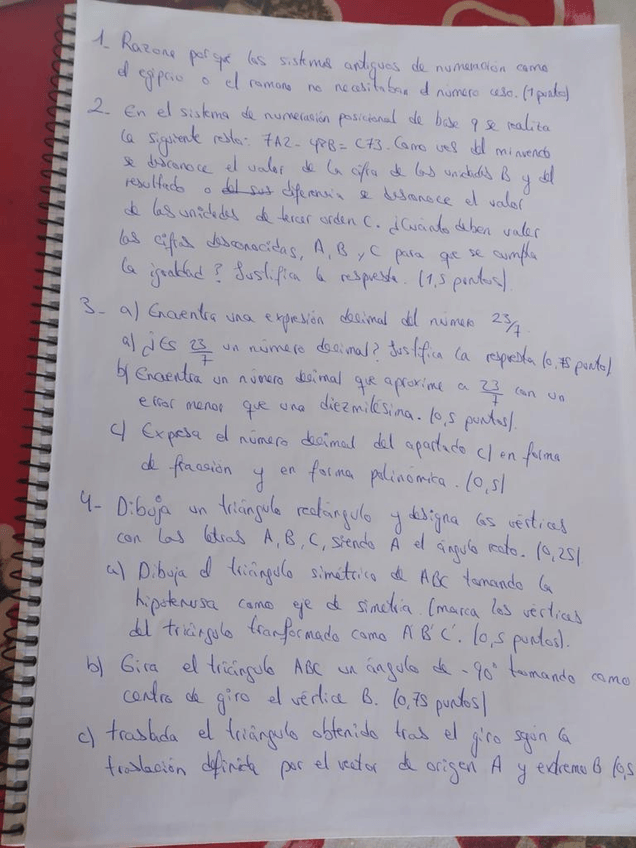 1- Razona porque los sistemas antiguos de numeración como
el egipcio o el romano no necesitaban el número cero. (1 punto)
2- En el sistema de numeración posicional de base 9 se realiza
la siguiente resta: 7A2 - 48B = C73. Como ves del minuendo
se desconoce el valor de la cifra de las unidades B y del
resultado o del sus diferencia se desconoce el valor
de las unidades de tercer orden C. ¿Cuánto deben valer
las cifras desconocidas, A, B y C para que se cumpla
la igualdad? Justifica la respuesta. (1,5 puntos)
3- a) Encuentra una expresión decimal del número 23/7
a) ¿Es 23/7 un número decimal? Justifica la respuesta (0,75 punto)
b) Encuentra un número decimal que aproxime a 23/7 con un
error menor que una diezmilésima. (0,5 puntos).
c) Expresa el número decimal del apartado c) en forma
de fracción y en forma polinómica. (0,5)
4- Dibuja un triángulo rectángulo y designa los vértices
con las letras A, B, C, siendo A el ángulo recto. (0,25).
a) Dibuja el triángulo simétrico de ABC tomando la
hipotenusa como eje de simetría. (marca los vértices
del triángulo tranformado como A'B'C'. (0,5 puntos).
b) Gira el triángulo ABC un ángulo de -90° tomando como
centro de giro el vértice B. (0,75 puntos)
c) traslada el triángulo obtenido tras el giro según la
traslación definida por el vector de origen A y extremo B (0,5